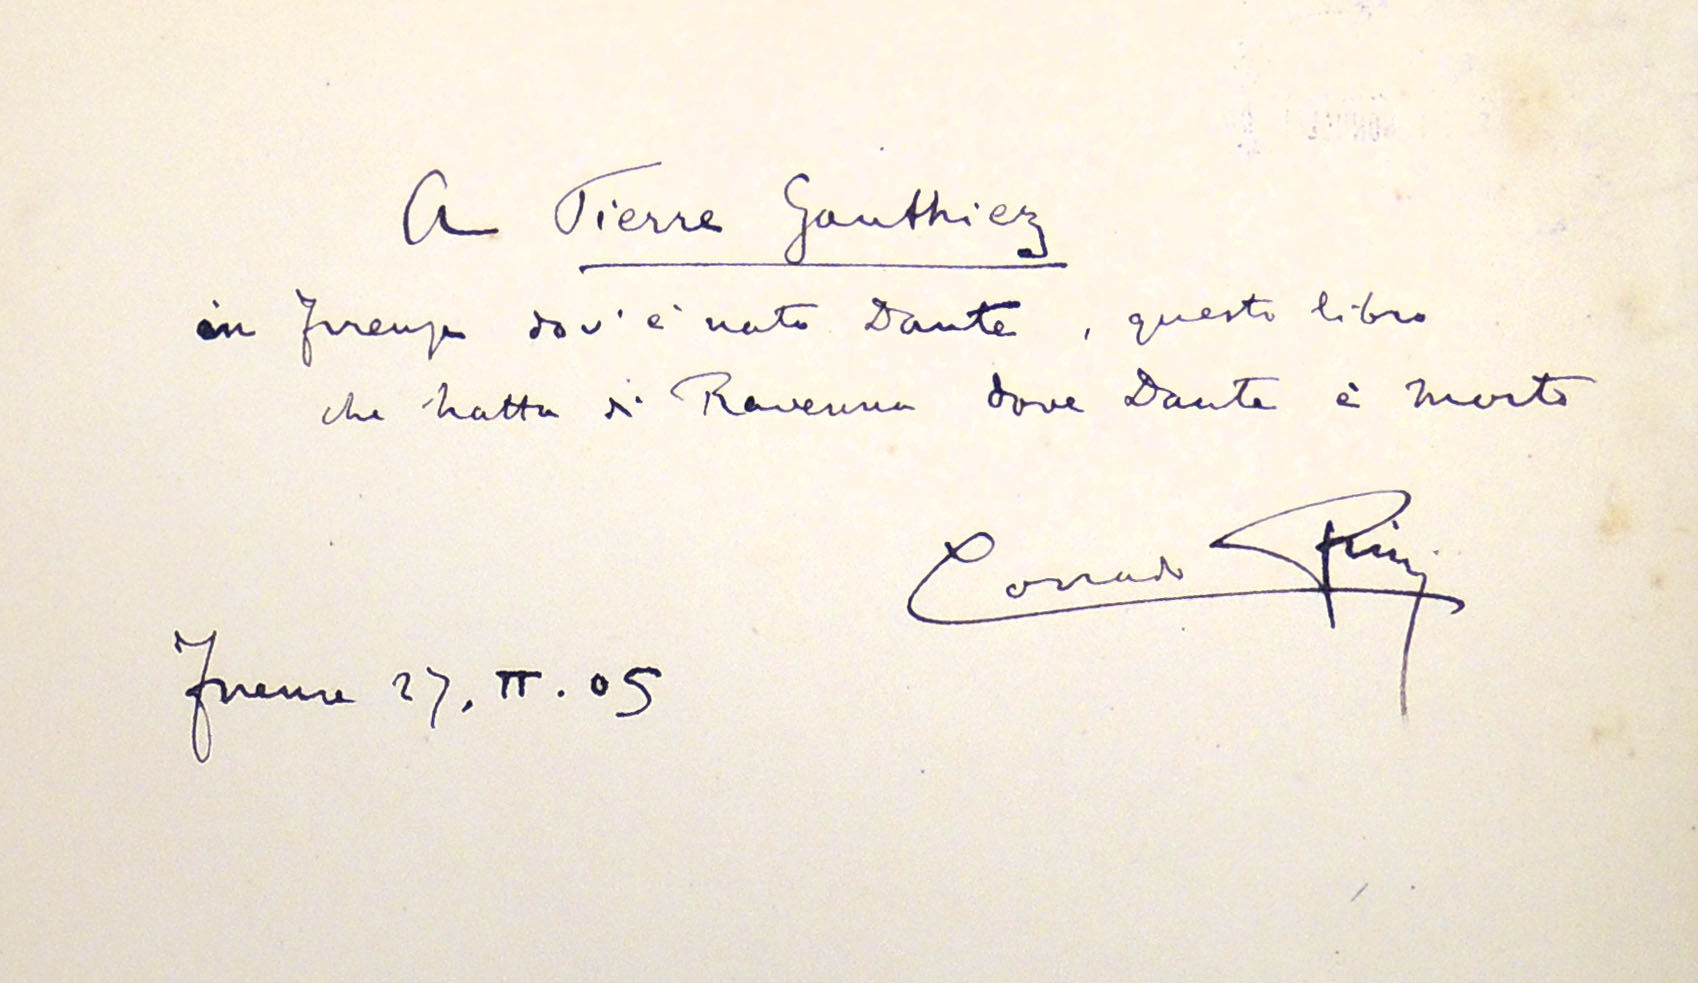 A Pierre Gauthiez
in Firenze dov'è nato Dante, questo libro
che tratta di Ravenna dove Dante è morto
Corrado Ricci
Firenze 27. II. 05